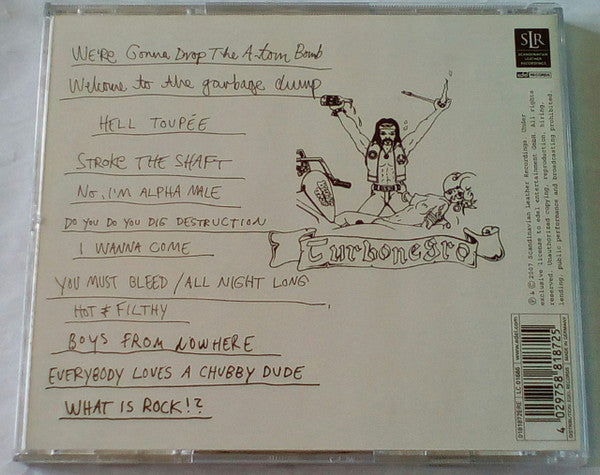 We're Gonna Drop The A-tom Bomb
Welcome to the garbage dump
HELL TOUPÉE
STROKE THE SHAFT
NO, I'M ALPHA MALE
DO YOU DO YOU DIG DESTRUCTION
I WANNA COME
YOU MUST BLEED / ALL NIGHT LONG
HOT & FILTHY
BOYS FROM NOWHERE
EVERYBODY LOVES A CHUBBY DUDE
WHAT IS ROCK!?
Turbonegro
SLR
SCANDINAVIAN
LEATHER
RECORDINGS
edel
RECORDS
℗ & © 2007 Scandinavian Leather Recordings. Under
exclusive license to edel entertainment GmbH. All rights
reserved. Unauthorised copying, reproduction, hiring,
lending, public performance and broadcasting prohibited.
0181872ERE | LC 01666 | www.edel.com
4 029758 818725
DISTRIBUTION: EDEL RECORDS | MADE IN GERMANY